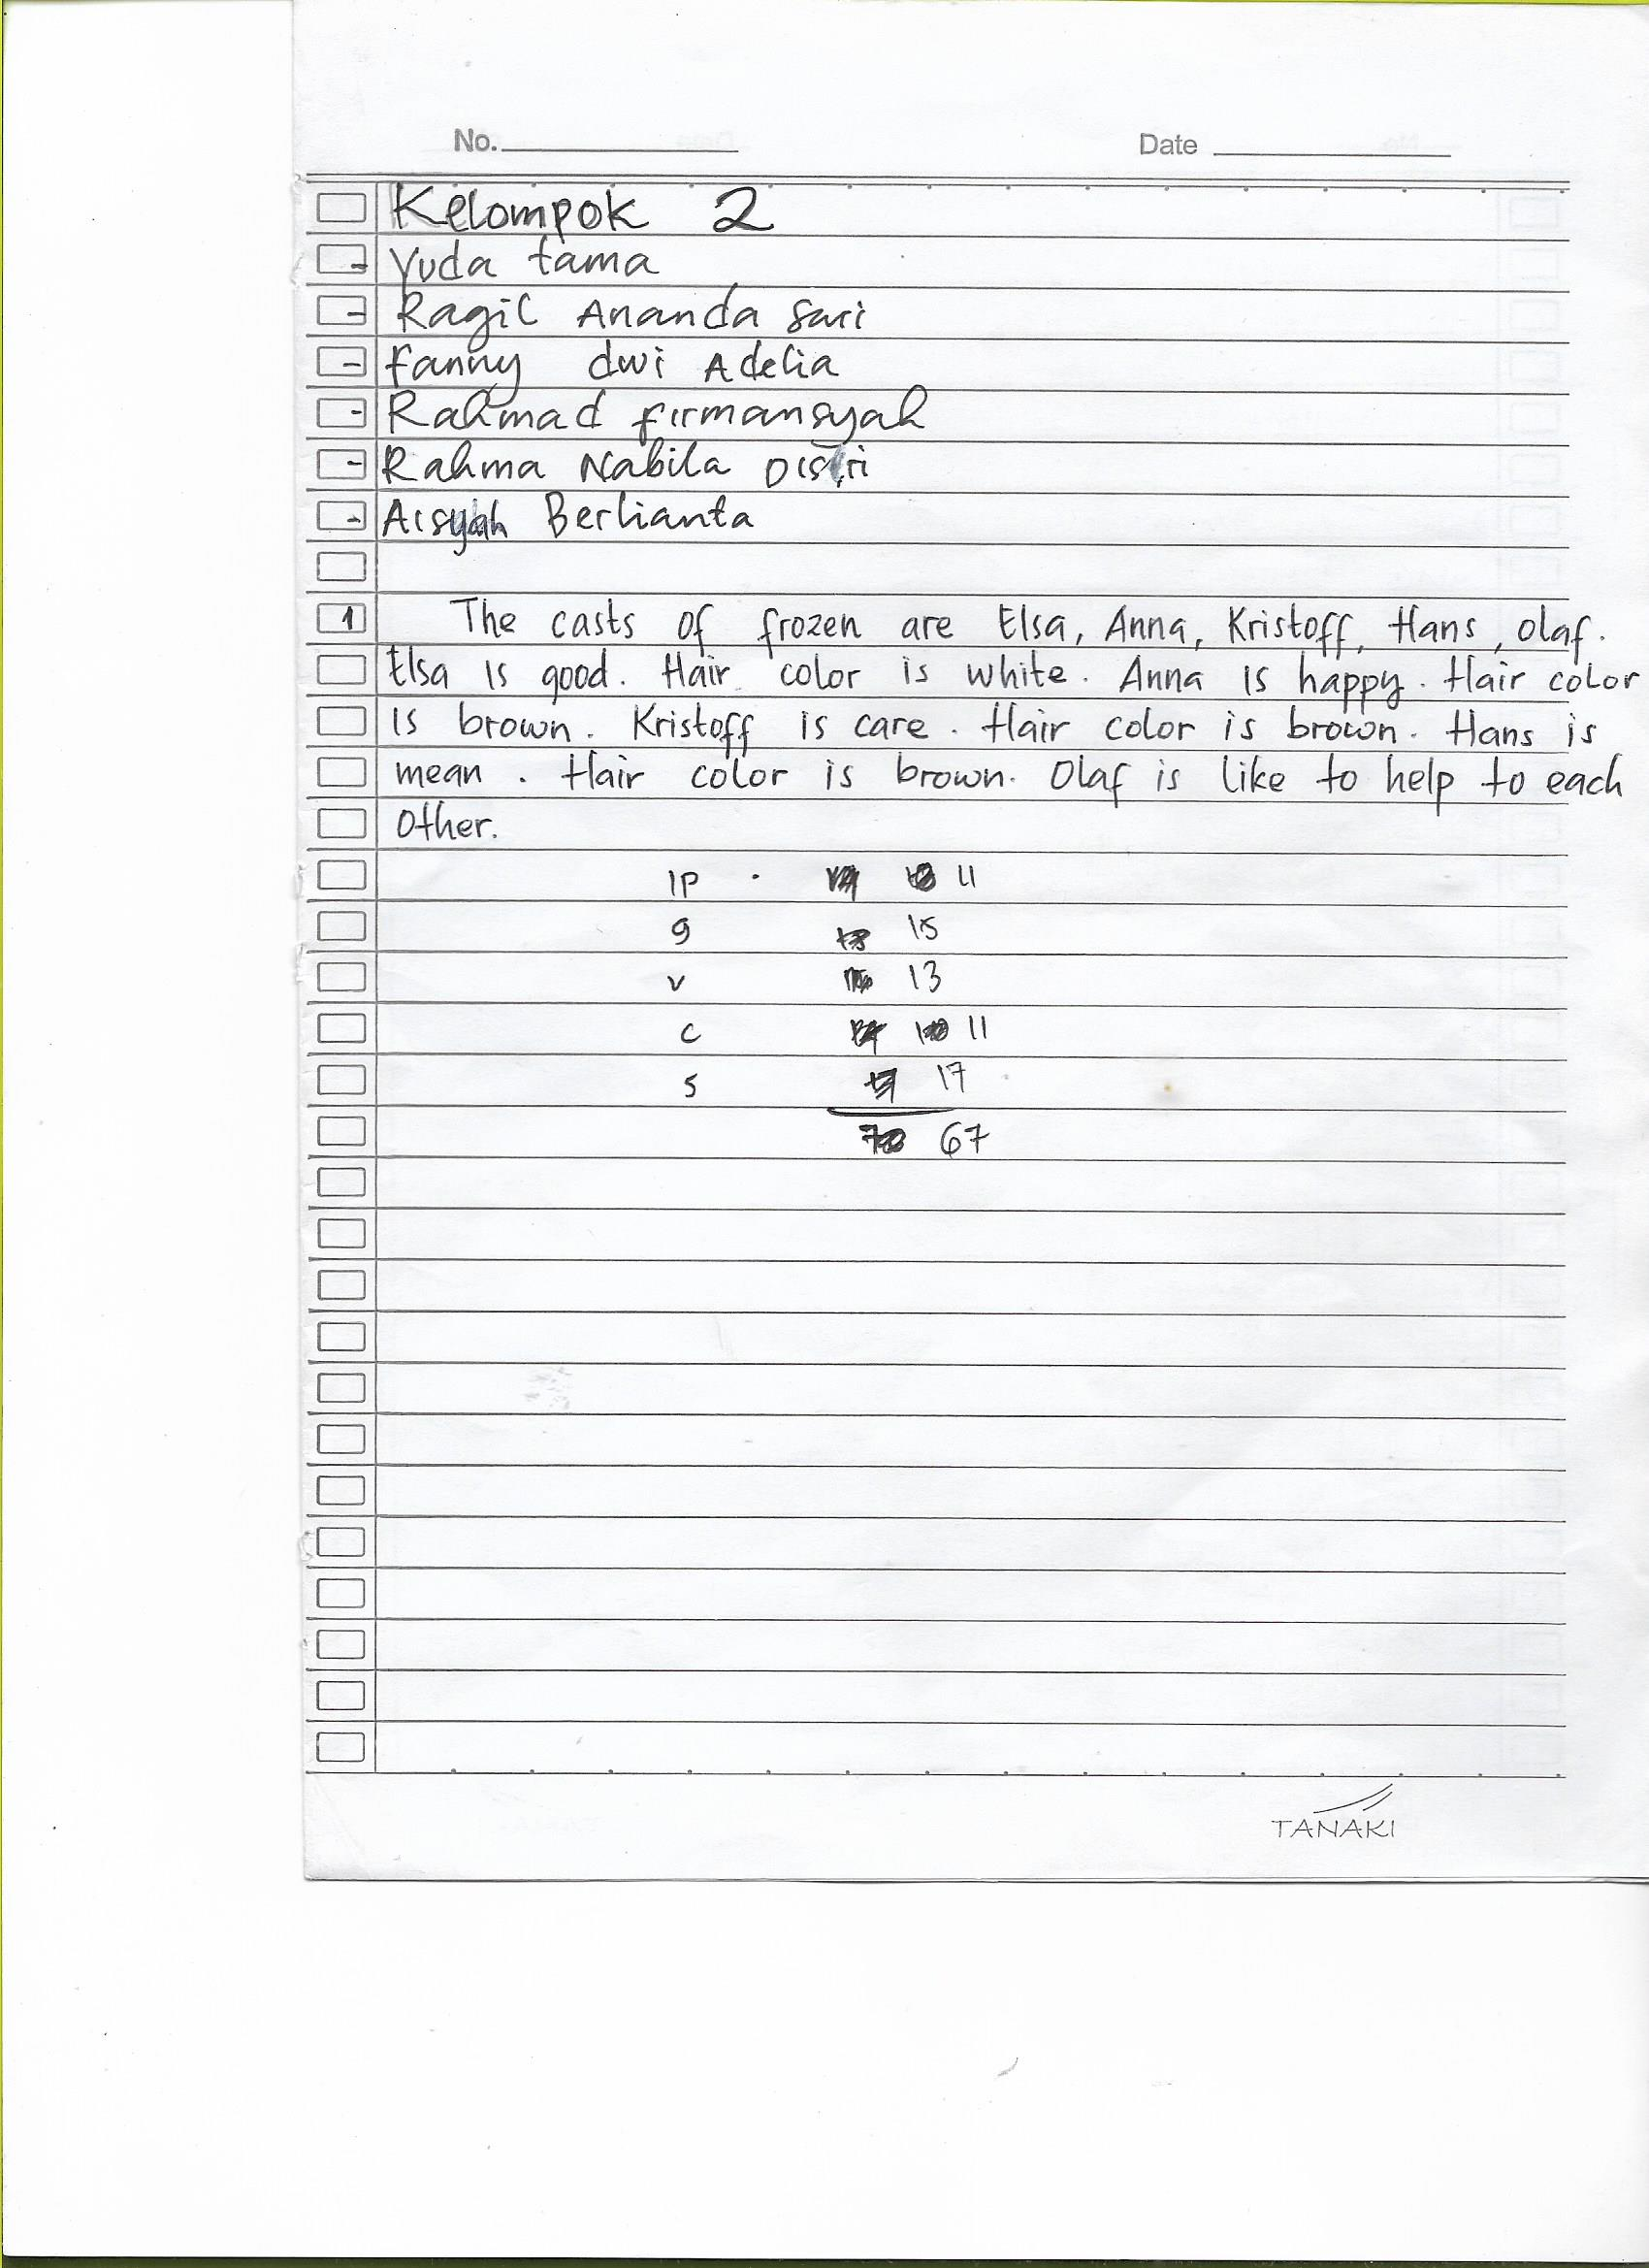 No. Date
Kelompok 2
- Yuda tama
- Ragil Ananda Sari
- Fanny dwi Adelia
- Rahmad firmansyah
- Rahma Nabila
- Aisyah Berlianta
1 The casts of frozen are Elsa, Anna, Kristoff, Hans, Olaf.
Elsa is good. Hair color is white. Anna is happy. Hair color
is brown. Kristoff is care. Hair color is brown. Hans is
mean. Hair color is brown. Olaf is like to help to each
other.
IP 11
g 15
v 13
c 11
s 17
67
TANAKI